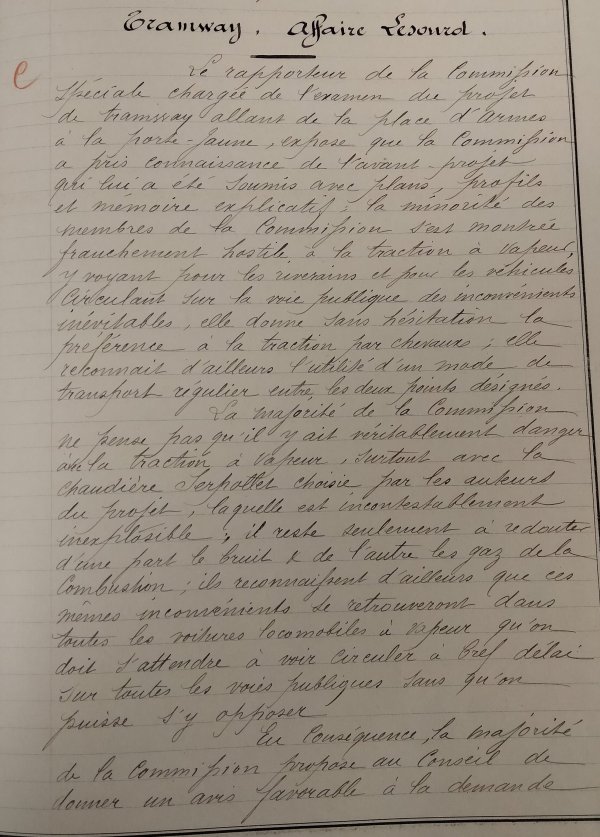 Tramway. Affaire Lesourd.
Le rapporteur de la Commission
spéciale chargée de l'examen du projet
de tramway allant de la place d'Armes
à la porte-Jaune, expose que la Commission
a pris connaissance de l'avant-projet
qui lui a été soumis avec plans, profils
et mémoire explicatif; la minorité des
membres de la Commission s'est montrée
franchement hostile à la traction à vapeur,
y voyant pour les riverains et pour les véhicules
circulant sur la voie publique des inconvénients
inévitables, elle donne sans hésitation la
préférence à la traction par chevaux; elle
reconnait d'ailleurs l'utilité d'un mode de
transport régulier entre les deux points désignés.
La majorité de la Commission
ne pense pas qu'il y ait véritablement danger
avec la traction à vapeur, surtout avec la
chaudière Serpollet choisie par les auteurs
du projet, laquelle est incontestablement
inexplosible; il reste seulement à redouter
d'une part le bruit & de l'autre les gaz de la
Combustion; ils reconnaissent d'ailleurs que ces
mêmes inconvénients se retrouveront dans
toutes les voitures locomobiles à vapeur qu'on
doit s'attendre à voir circuler à bref délai
sur toutes les voies publiques sans qu'on
puisse s'y opposer
En Conséquence, la majorité
de la Commission propose au Conseil de
donner un avis favorable à la demande